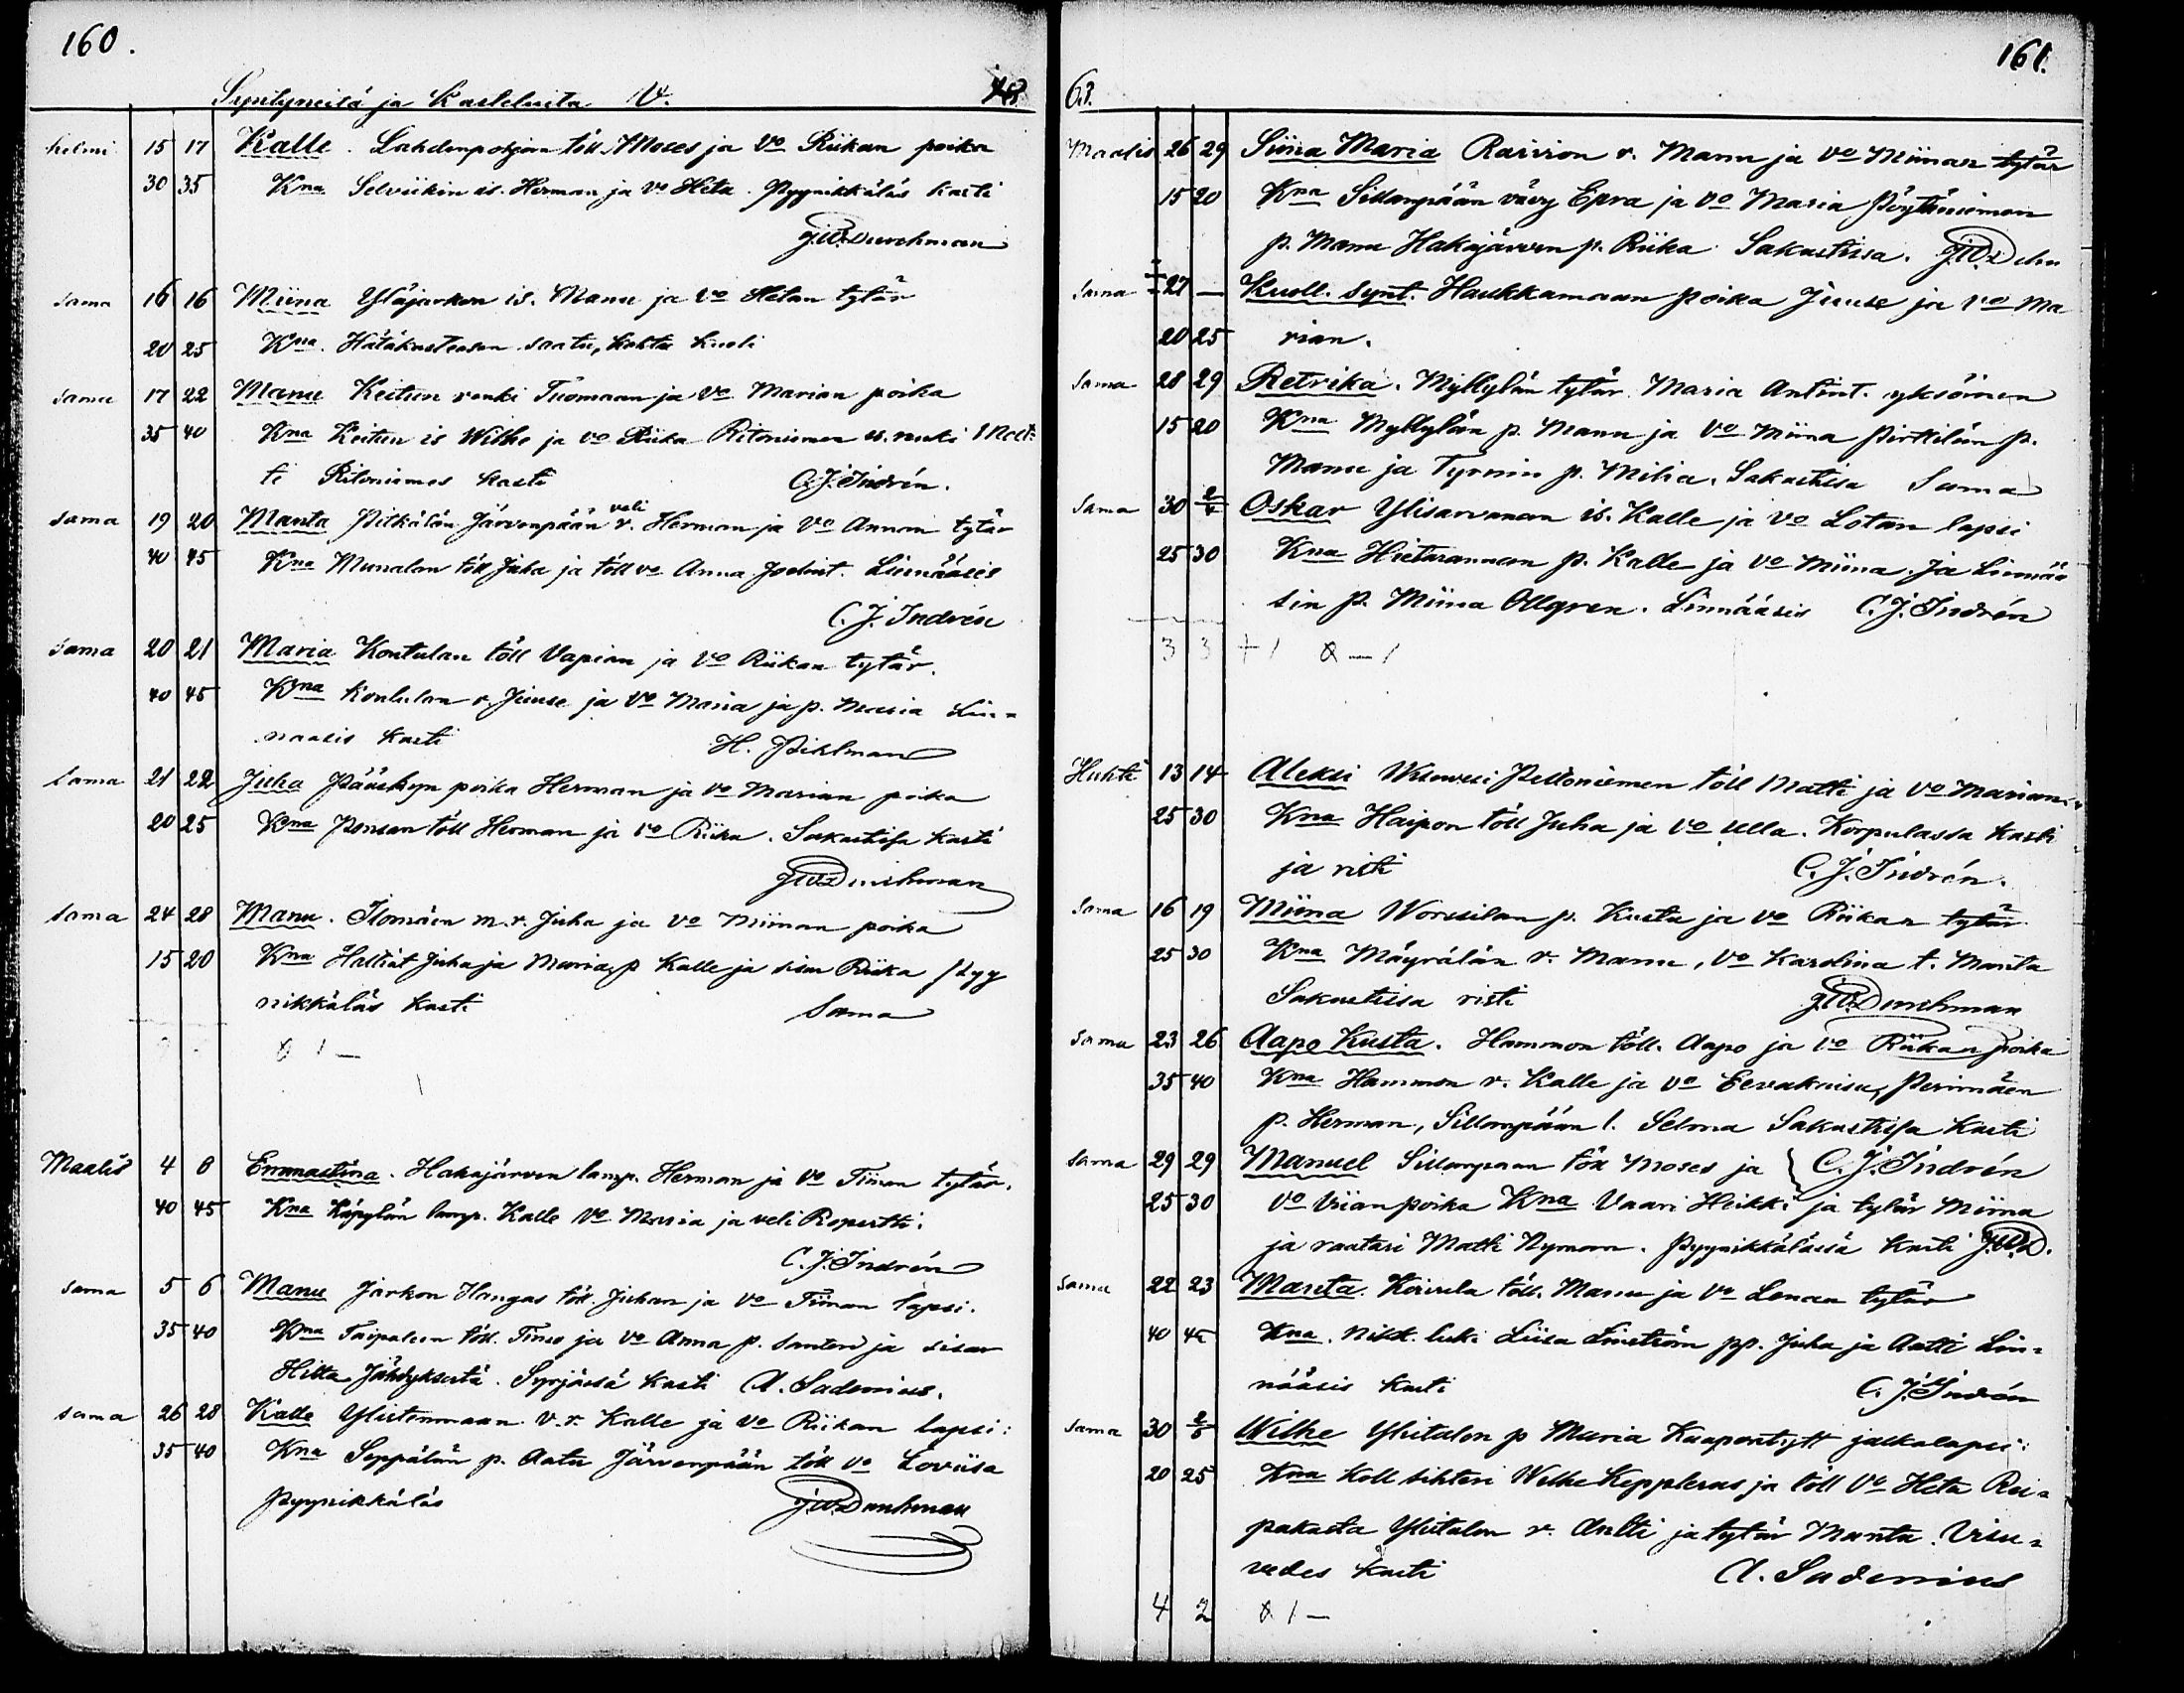 160.
Syntyneitä ja Kasteluita V.
helmi 15 17 Kalle. Lahdenpohjan töll. Moses ja Vo Riikan poika
30 35 Kna Selviikin is. Herman ja Vo Heta. Pyynikkäläs kasti
J.W. Durchman
sama 16 16 Miina Yläjarkon is. Manu ja Vo Hetan tytär
20 25 Kna. Hätäkasteosen saatu, kohta kuoli
sama 17 22 Manu Keitun renki Tuomaan ja Vo Marian poika
35 40 Kna Keitun is Wilhe ja vo Riika Ritoniemen is. renki Mat-
ti Ritoniemes kasti C.J. Indrén.
sama 19 20 Manta Pitkälän Järvenpään veli v. Herman ja Vo Annan tytär
40 45 Kna Munalan töll Juha ja töll vo Anna Joelint. Linnääsis
C.J. Indrén
sama 20 21 Maria Kontulan töll Vapian ja Vo Riikan tytär.
40 45 Kna Koulutan r. Juuse ja Vo Maria ja p. Maria Lin-
naasis kasti H. Pihlman
sama 21 22 Juha Pääskyn poika Herman ja Vo Marian poika
20 25 Kna Ponsan töll Herman ja Vo Riika. Sakastissa kasti
J.W. Durchman
sama 24 28 Manu. Ilomäen m.r. Juha ja Vo Miinan poika
15 20 Kna Haltiat Juha ja Maria, p Kalle ja sisar Riika Pyy
nikkäläs kasti Sama
Maalis 4 6 Emmastina. Hakajärven lamp. Herman ja Vo Tiinan tytär.
40 45 Kna Käpylän lamp. Kalle Vo Maria ja veli Ropertti.
C.J. Indrén
sama 5 6 Manu Jarkon Hangas töll. Juhan ja Vo Tiinan lapsi.
35 40 Kna Taipaleen töll. Tinus ja Vo Anna p. Santeri ja sisar
Hilta Jähdyksestä. Syrjässä kasti A. Sadenius.
sama 26 28 Kalle Ylistenmaan v.r. Kalle ja Vo Riikan lapsi:
35 40 Kna Seppälän p. Aatu Järvenpään töll vo Loviisa
Pyynikkäläs J.W. Durchman
161.
63.
Maalis 26 29 Siina Maria Raivion r. Manu ja Vo Miinan tytär
15 20 Kna Sillanpään vävy Epra ja Vo Maria Pöytäniemen
p. Manu Hakajärven p. Riika Sakastissa. J.W. Dchn
sama 27 — Kuoll. synt. Haukkamaan poika Juuse ja Vo Ma
20 25 rian.
sama 28 29 Retrika. Myllylän tytär Maria Antint. yksöinen
15 20 Kna Myllylän p. Manu ja Vo Miina Pirttilän p.
Manu ja Tyrnin p. Milia. Sakastissa Sama
sama 30 2/4 Oskar Ylisarvanan is. Kalle ja Vo Lotan lapsi
25 30 Kna Hietarannan p. Kalle ja Vo Miina. ja Linnää
sin p. Miina Ollgren. Linnääsis C.J. Indrén
3 3 + 1 — 1
Huhti 13 14 Aleksi Wisuvesi Peltoniemen töll Matti ja Vo Marian
25 30 Kna Haipon töll Juha ja Vo Ulla. Korpulassa kasti
ja risti C.J. Indrén.
sama 16 19 Miina Worssilan p. Kusta ja Vo Riikan tytär
25 30 Kna Mäyrälän r. Manu, Vo Karolina t. Manta
Sakastissa risti J.W. Durchman
sama 23 26 Aapo Kusta. Hammon töll. Aapo ja Vo Riikan poika
35 40 Kna Hammon r. Kalle ja Vo Eevakaisa, Perimäen
p. Herman, Sillanpään l. Selma Sakastissa kasti
sama 29 29 Manuel Sillanpään töll Moses ja C.J. Indrén
25 30 Vo Viian poika Kna Vaari Heikki ja tytär Miina
ja raatari Matti Nyman. Pyynikkälässä kasti J.W.D.
sama 22 23 Manta. Koivula töll. Manu ja Vo Lenan tytär
40 45 Kna. Nikk. luki Liisa Linström pp. Juha ja Antti Lin-
nääsis kasti C.J. Indrén
sama 30 2/5 Wilhe Ylitalon p Maria Kaapontytt jalkalapsi:
20 25 Kna Koll sihteri Wilhe Kepplerus ja töll Vo Heta Rei-
pakasta Ylitalon r. Antti ja tytär Manta. Visu-
vedes kasti A. Sadenius
4 2 1 —